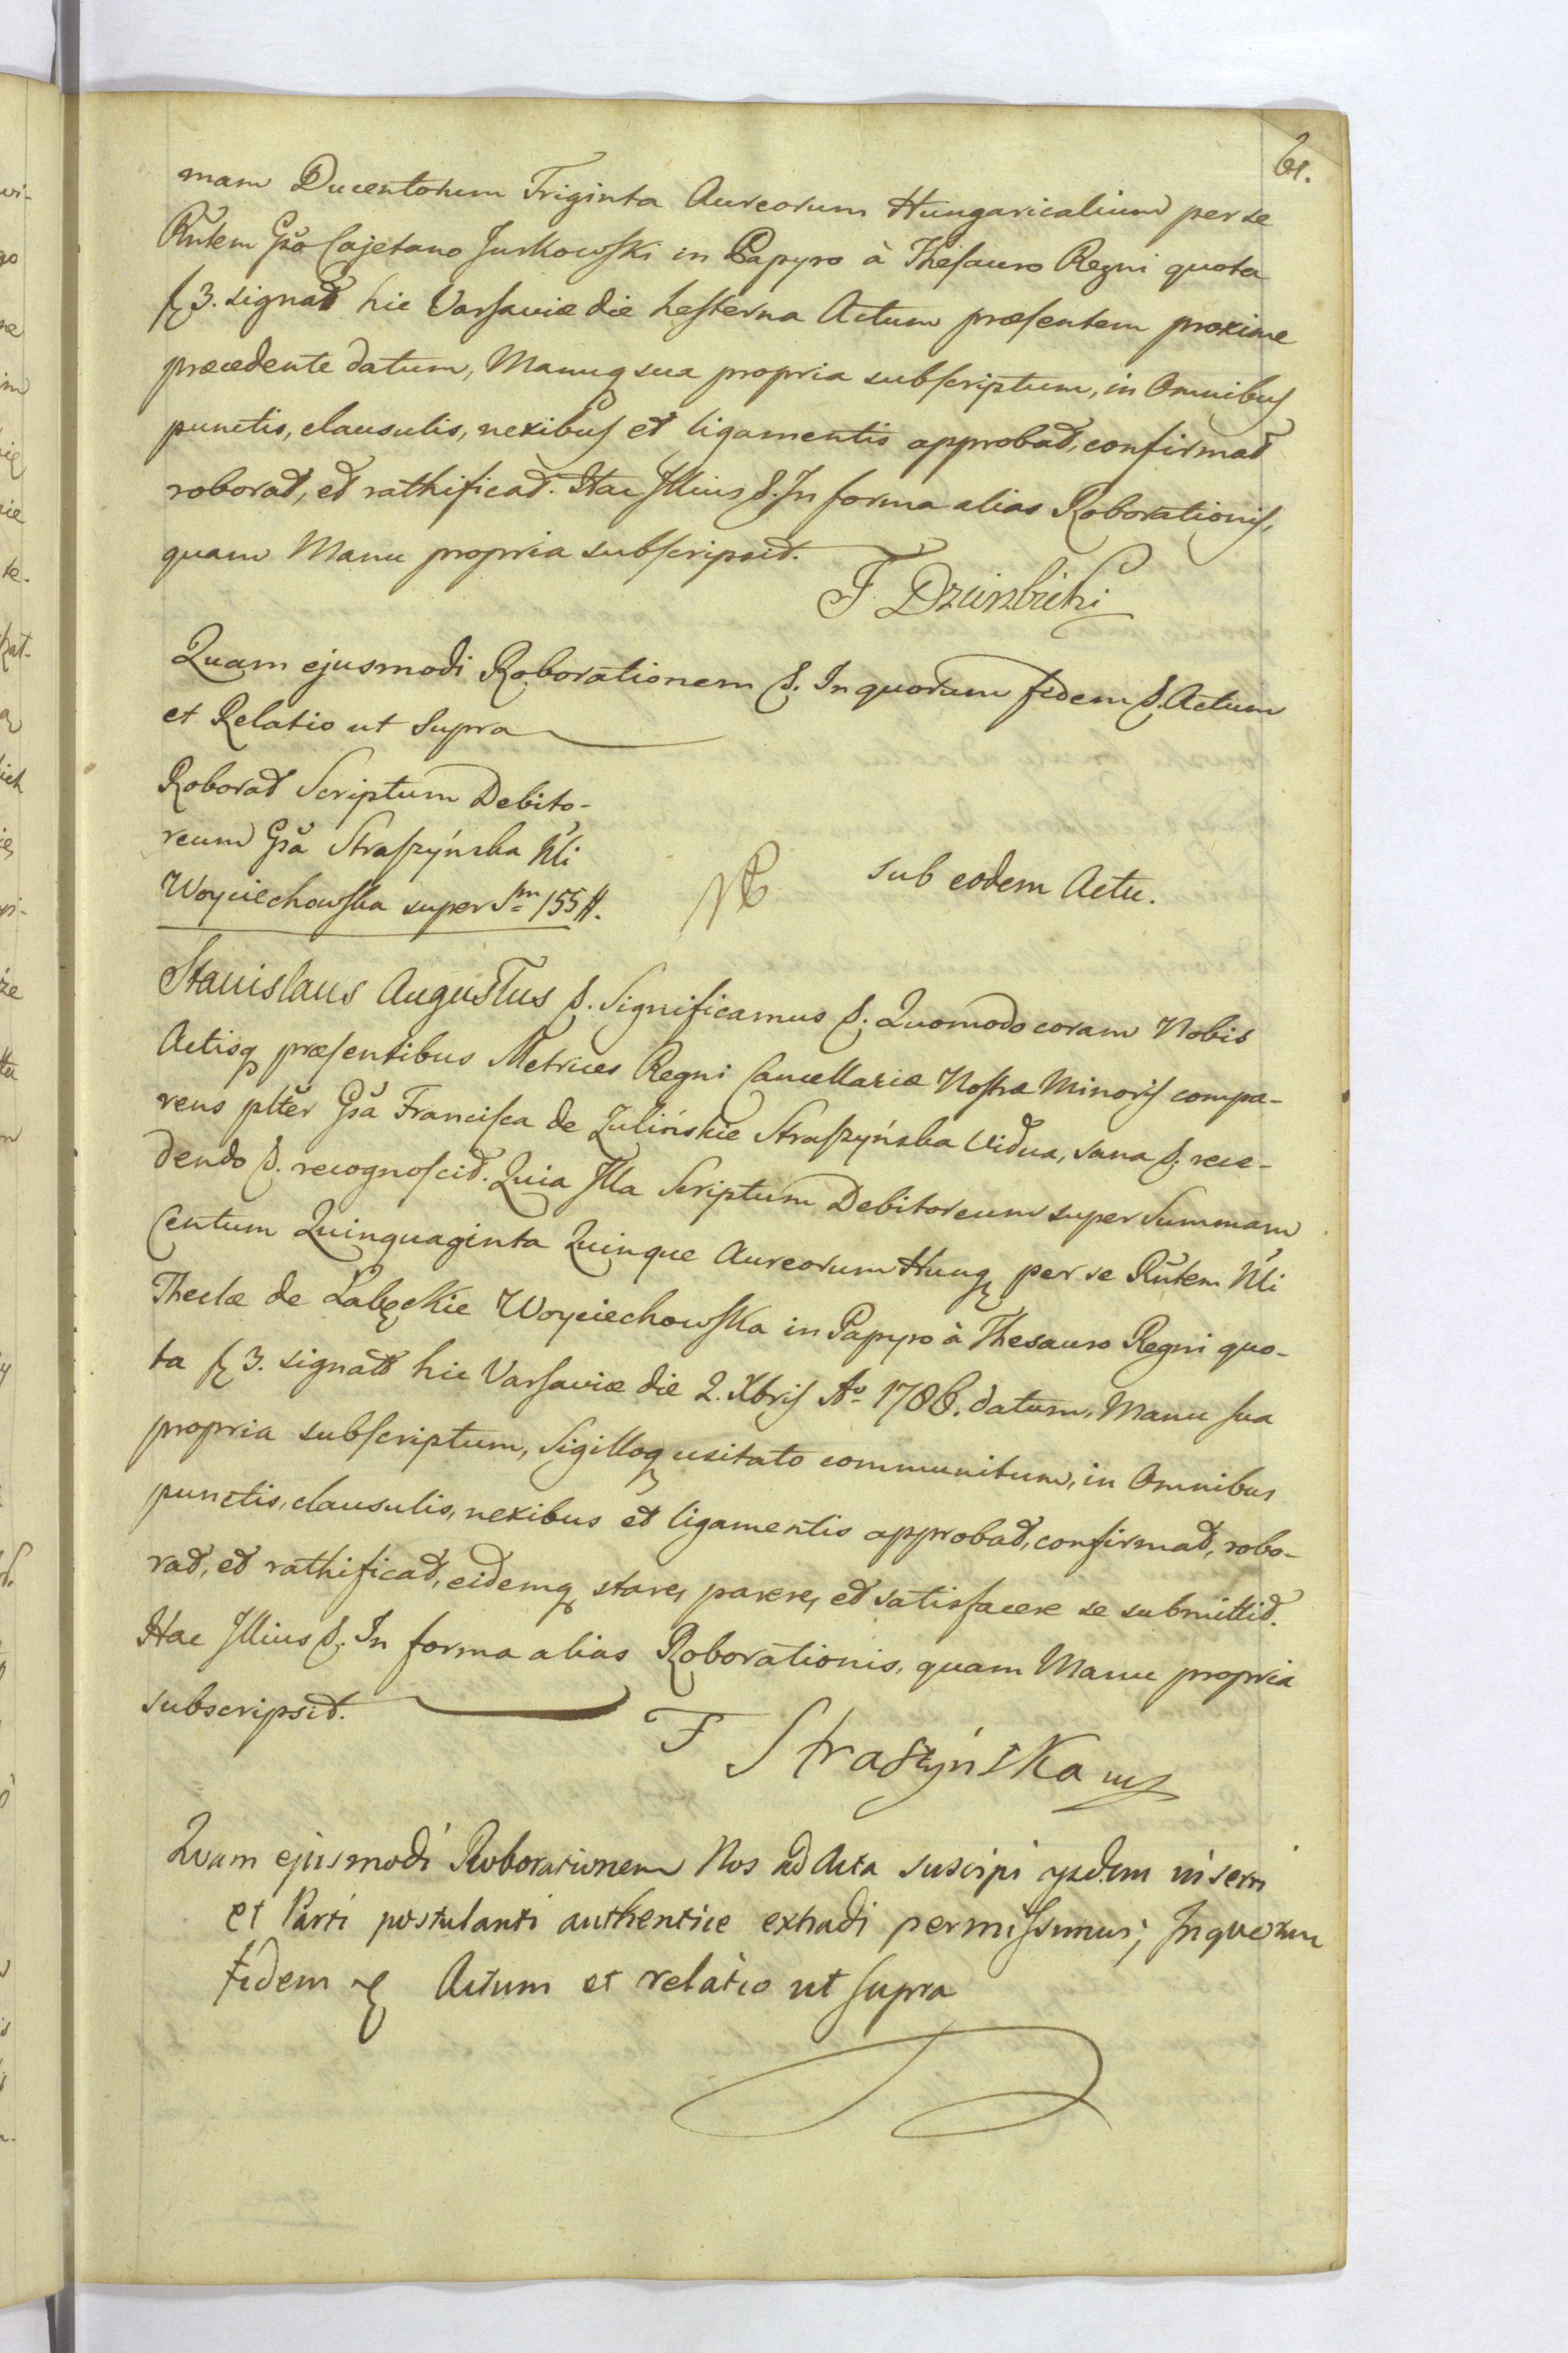 61.
mam Ducentorum Triginta Aureorum Hungaricalium per se
Rntem Gso Cajetano Jurkowski in Papyro à Thesauro Regni quota
fl 3. signat hic Varsaviæ die hesterna Actum præsentem proxime
præcedente datum, Manuq sua propria subscriptum, in Omnibus
punctis, clausulis, nexibus et ligamentis approbat, confirmat
roborat, et rathificat. Hac Illius &. In forma alias Roborationis,
quam Manu propria subscripsit.
F. Dzierzbicki
Quam ejusmodi Roborationem &. In quorum fidem &. Actum
et Relatio ut Supra
Roborat Scriptum Debito-
reum Gsa Straszyńska Nli
Woyciechowska super Sm 155 #.
sub eodem Actu.
Stanislaus Augustus &. Significamus &. Quomodo coram Nobis
Actisq præsentibus Metrices Regni Cancellariæ Nostræ Minoris compa-
rens plter Gsa Francisca de Zulińskie Straszyńska Vidua, sana &. rece-
dendo &. recognoscit. Quia Illa Scriptum Debitoreum super Summam
Centum Quinquaginta Quinque Aureorum Hung per se Rntem Nli
Theclæ de Łabęckie Woyciechowska in Papyro à Thesauro Regni quo-
ta fl 3. signato hic Varsaviæ die 2. Xbris Ao 1786. datum, Manu sua
propria subscriptum, Sigilloq usitato communitum, in Omnibus
punctis, clausulis, nexibus et ligamentis approbat, confirmat, robo-
rat, et rathificat, eidemq stare, parere, et satisfacere se submittit.
Hac Illius &. In forma alias Roborationis, quam Manu propria
subscripsit.
F Straszyńska
Quam ejusmodi Roborationem Nos ad Acta suscipi ysdem inserri
et Parti postulanti authentice extradi permissimus; In quorum
fidem & Actum et relatio ut supra